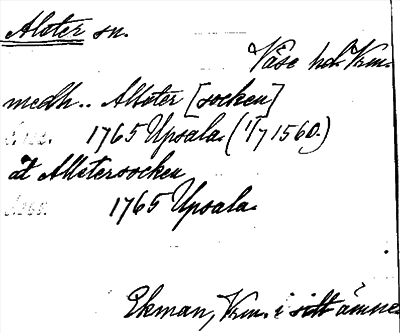 Alster sn.
Väse hd. Vrm.
medh.. Allster [socken]
1765 Upsala. (1/7 1560.)
åt Alstersocken
1765 Upsala.
Ekman, Vrm. i sitt ämne